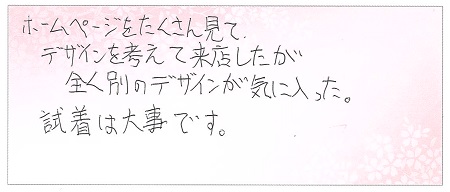 ホームページをたくさん見て、
デザインを考えて来店したが
全く別のデザインが気に入った。
試着は大事です。